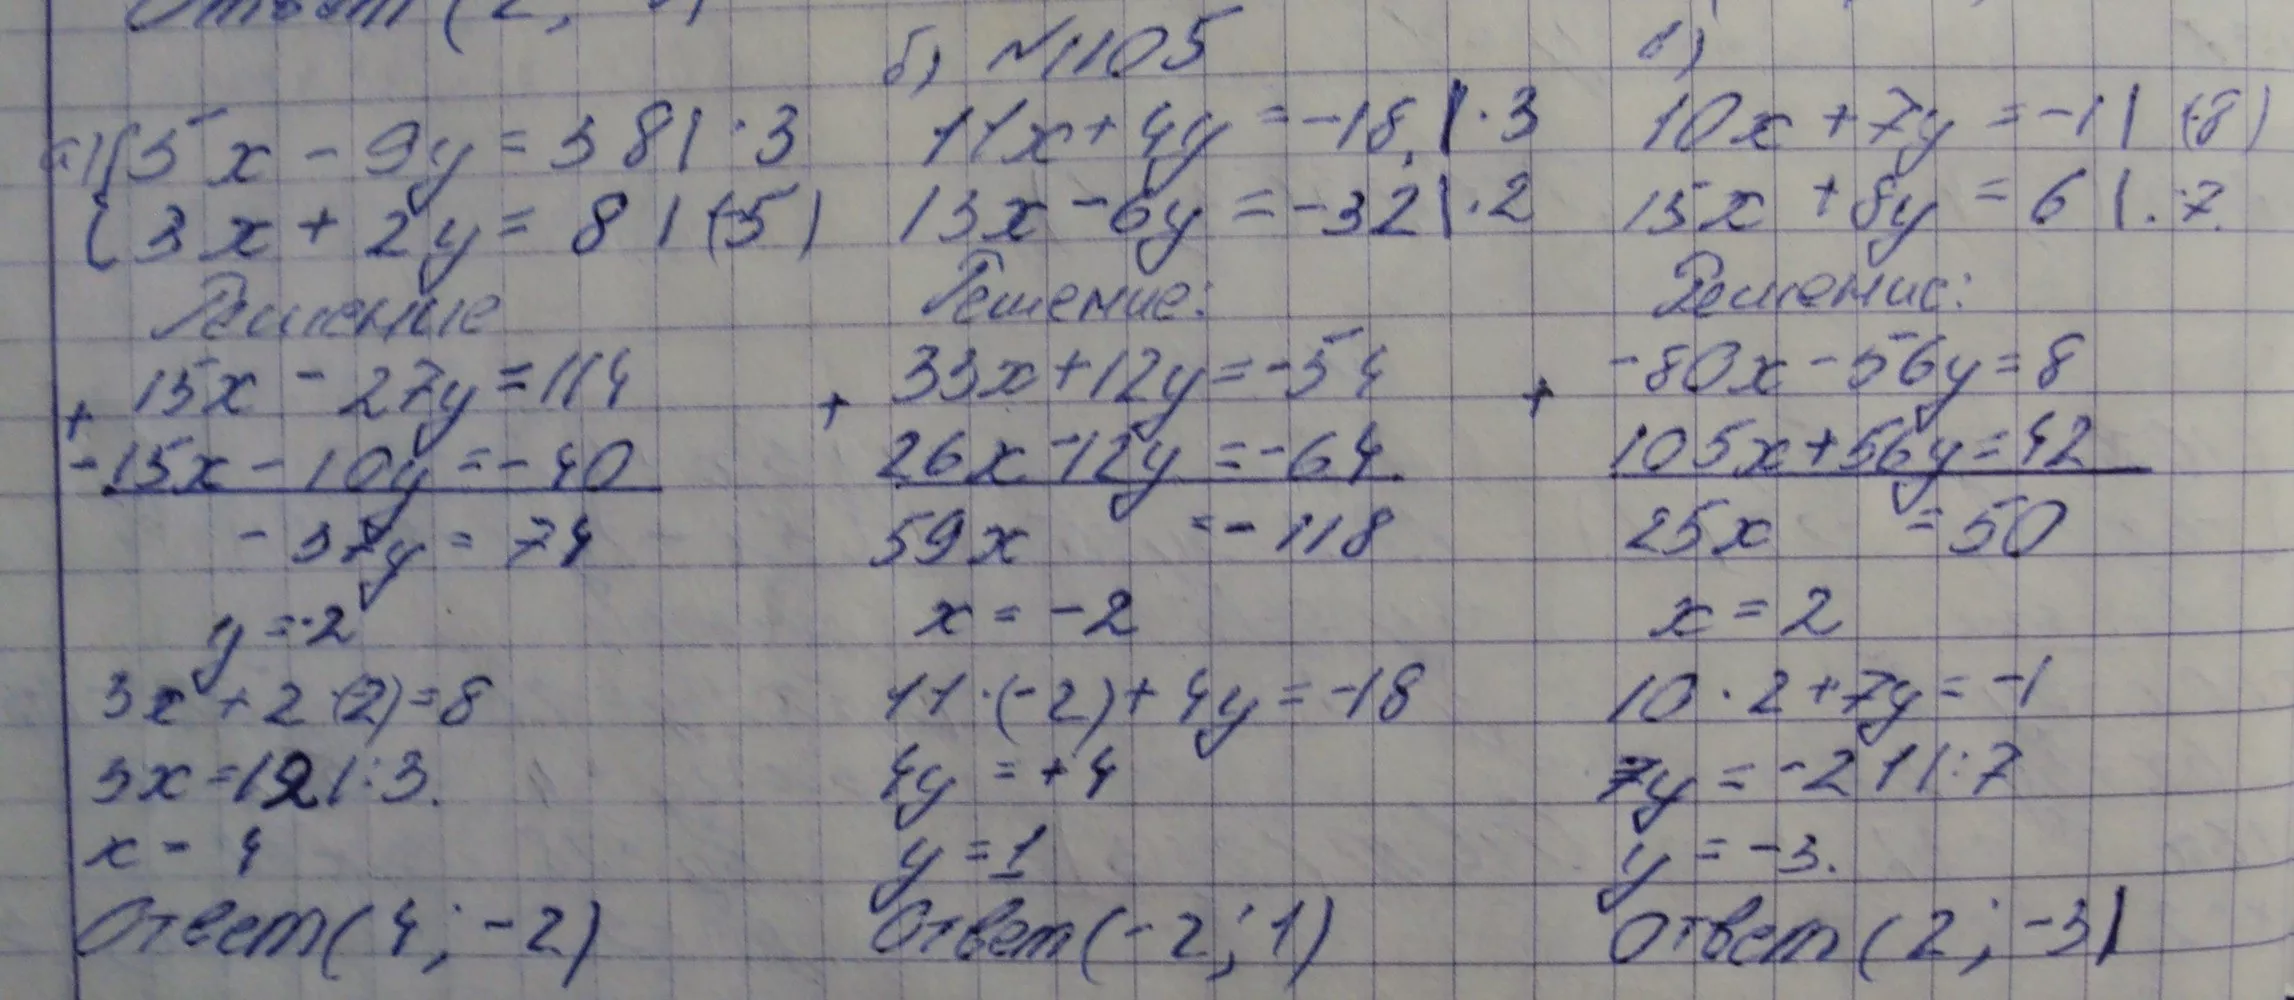 Ответ (2;
№1105
а) 5x - 9y = 38 | · 3
3x + 2y = 8 | (-5)
Решение
+ 15x - 27y = 114
-15x - 10y = -40
-37y = 74
y = -2
3x + 2 · (2) = 8
3x = 12 | : 3.
x = 4
Ответ (4; -2)
б)
11x + 4y = -18 | · 3
13x - 6y = -32 | · 2
Решение:
+ 33x + 12y = -54
26x - 12y = -64
59x = -118
x = -2
11 · (-2) + 4y = -18
4y = +4
y = 1
Ответ (-2; 1)
в)
10x + 7y = -1 | (-8)
15x + 8y = 6 | · 7
Решение:
+ -80x - 56y = 8
105x + 56y = 42
25x = 50
x = 2
10 · 2 + 7y = -1
7y = -21 | : 7
y = -3.
Ответ (2; -3)